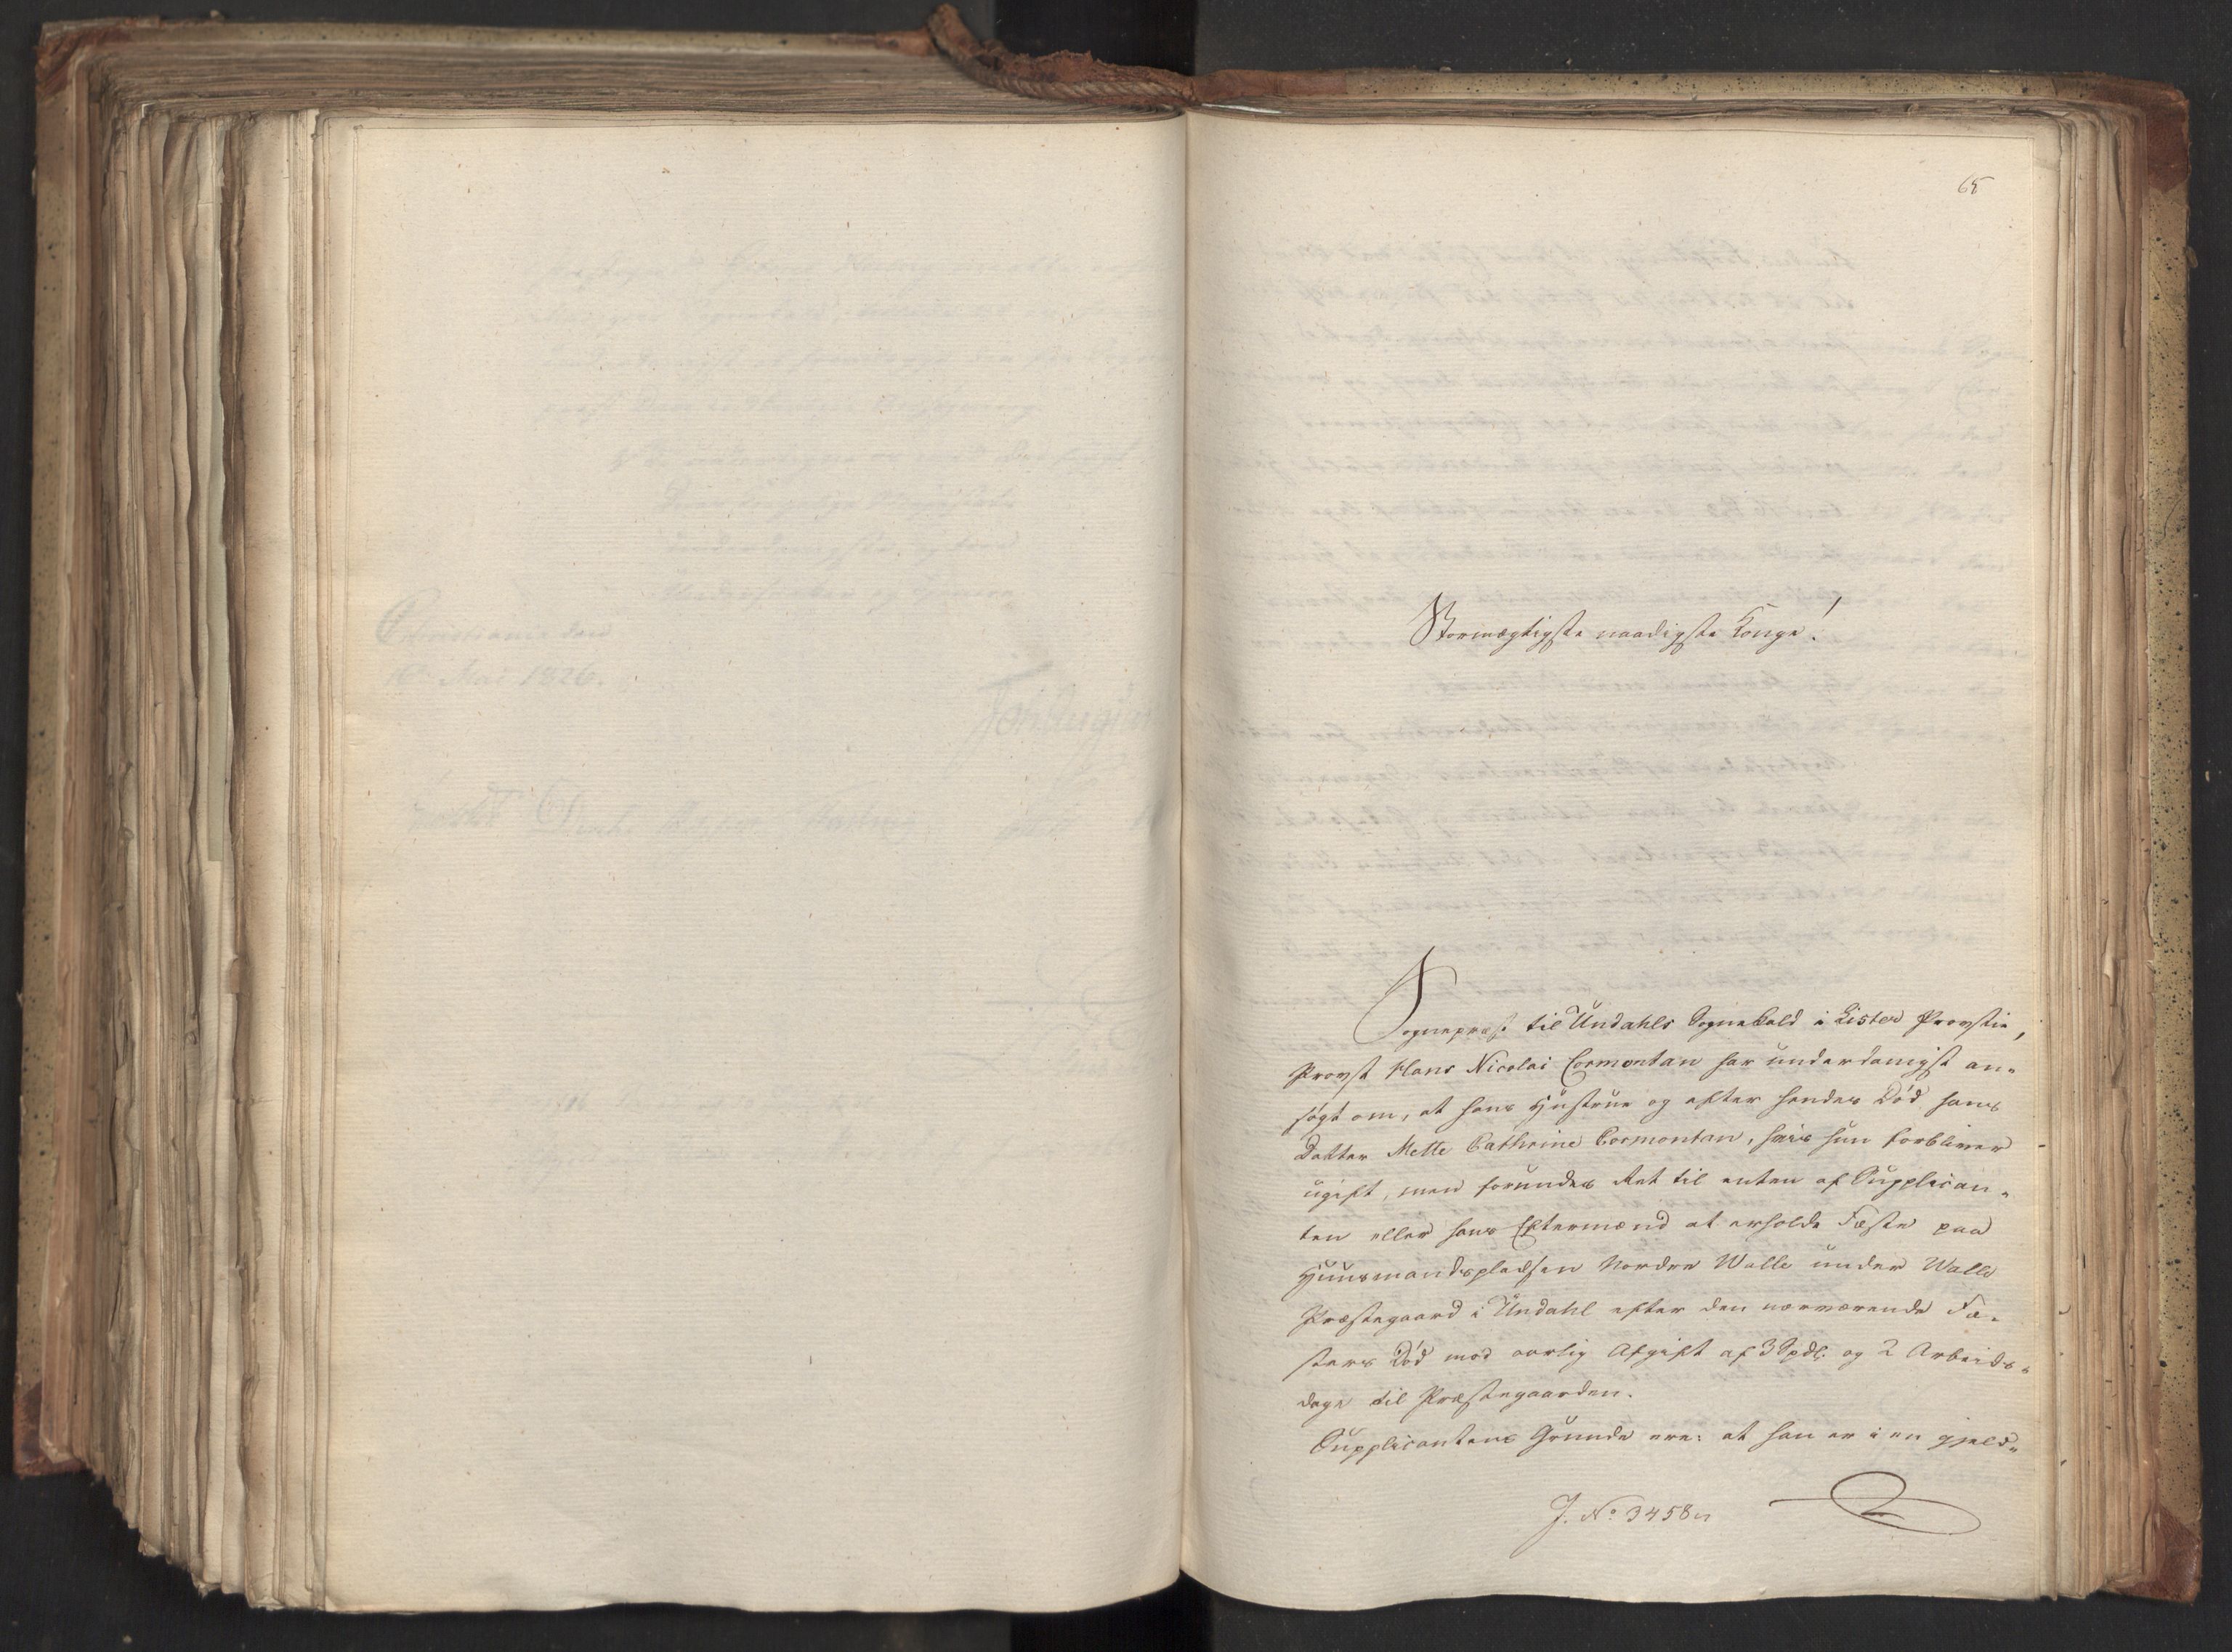 65
Stormægtigste naadigste Konge!
Sognepræst til Undahls Sognekald i Lister Provstie,
Provst Hans Nicolai Cormontan har underdanigst an„
søgt om, at hans Hustrue og efter hendes Død hans
Datter Mette Cathrine Cormontan, hvis hun forbliver
ugift, maa forundes Ret til enten af Supplican„
ten eller hans Eftermænd at erholde Fæste paa
Huusmandspladsen Nordre Walle under Walle
Præstegaard i Undahl efter den nærværende Fæ„
sters Død mod aarlig Afgift af 3 Spdl. og 2 Arbeids„
dage til Præstegaarden.
Supplicantens Grunde ere: at han er i en gjeld„
J. No 3458